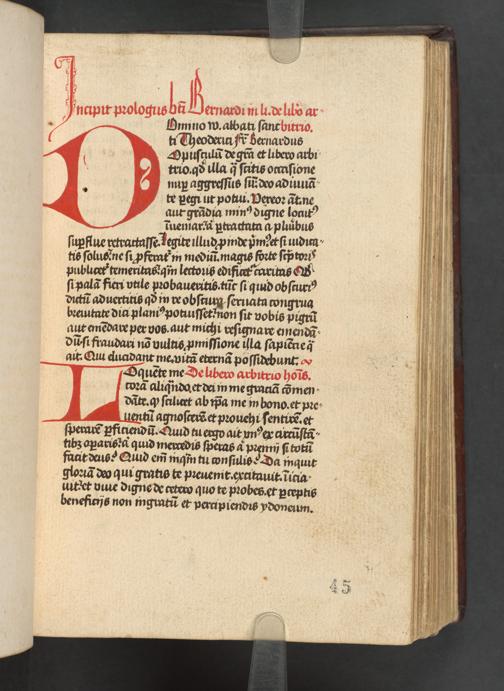 Incipit prologus bti Bernardi in li. de libo ar-
Omino w. abbati sanc bitrio.
ti Theoderici Fr̄ Bernardus
Opusculū de grā et libero arbi
trio. qd illa q̄ scitis occasione
nup aggressus sū: deo adiuuā-
te pegi ut potui. Vereor āt. ne
aut grādia minꝰ digne locutꝰ
inueniar: ā ptractata a pluribus
supflue retractasse. legite illud. pmde pmꝰ. et si iudica-
tis solus: ne si pferat̄ in mediū. magis forte sctoriꝭ
publicet̄ temeritas. qm̄ lectoris edificet̄ caritas Qd
si palā fieri vtile probaueritis. tūc si quid obscuriꝰ
dictū aduertitis qd in re obscura seruata congrua
breuitate dia planiꝰ potuisset: non sit vobis pigrū
aut emēdare per vos. aut michi resignare emendā-
dū. si fraudari nō vultis. pmissione illa sapiētie q̄
ait. Qui elucidant me. vitā eternā possidebunt.
Loquēte me De libero arbitrio hoīs.
corā aliqñdo. et dei in me graciā cōmen-
dāte. qꝫ scilicet ab ipsa me in bono. et pre
uentū agnoscerē. et prouehi sentirē. et
sperarē pficiendū. Quid tu ergo ait vnꝰ ex circūstā-
tibꝫ oparis: ā quid mercedis speras ā premij si totū
facit deus? Quid em̄ inqm̄ tu consulis? Da inquit
gloriā deo qui gratis te preuenit. excitauit. inicia-
uit: et viue digne de cetero quo te probes. et pceptis
beneficijs non ingratū et percipiendis ydoneum.
45